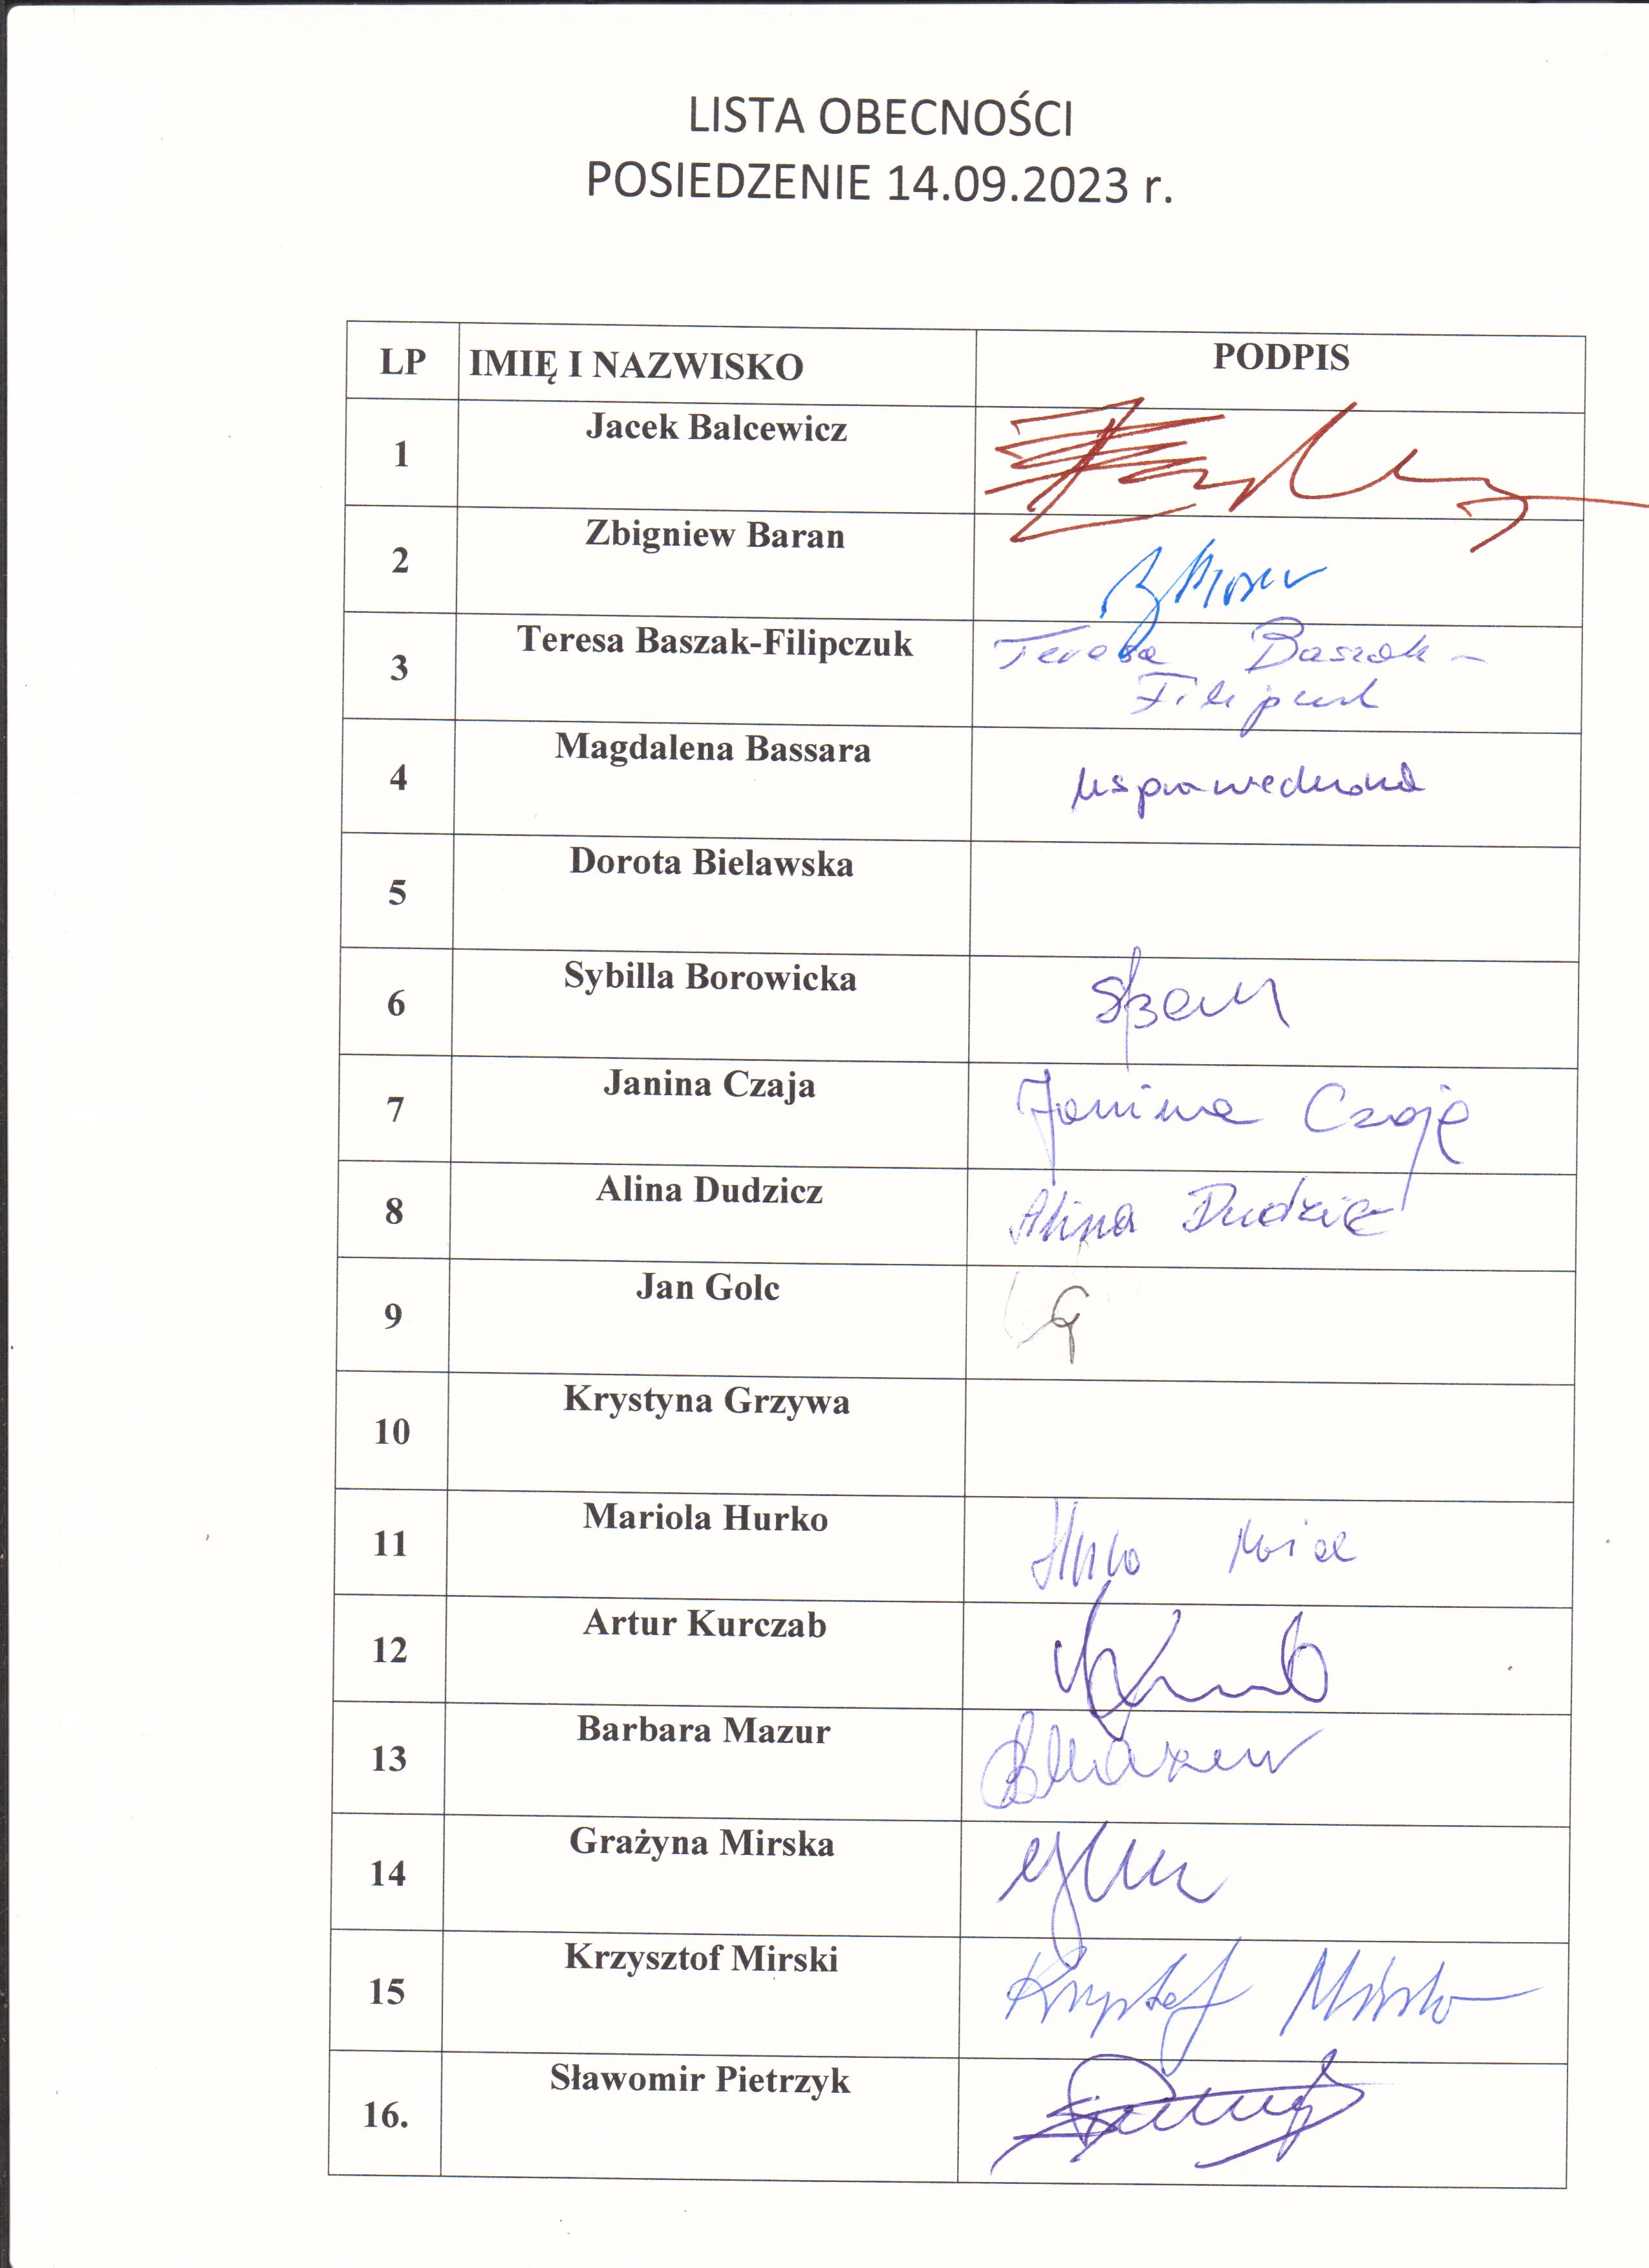 LISTA OBECNOŚCI
POSIEDZENIE 14.09.2023 r.
LP IMIĘ I NAZWISKO PODPIS
1 Jacek Balcewicz
2 Zbigniew Baran
3 Teresa Baszak-Filipczuk Teresa Baszak -
Filipczuk
4 Magdalena Bassara usprawiedliwiona
5 Dorota Bielawska
6 Sybilla Borowicka
7 Janina Czaja Janina Czaja
8 Alina Dudzicz Alina Dudzicz
9 Jan Golc
10 Krystyna Grzywa
11 Mariola Hurko
12 Artur Kurczab
13 Barbara Mazur BMazur
14 Grażyna Mirska
15 Krzysztof Mirski Krzysztof Mirski
16. Sławomir Pietrzyk